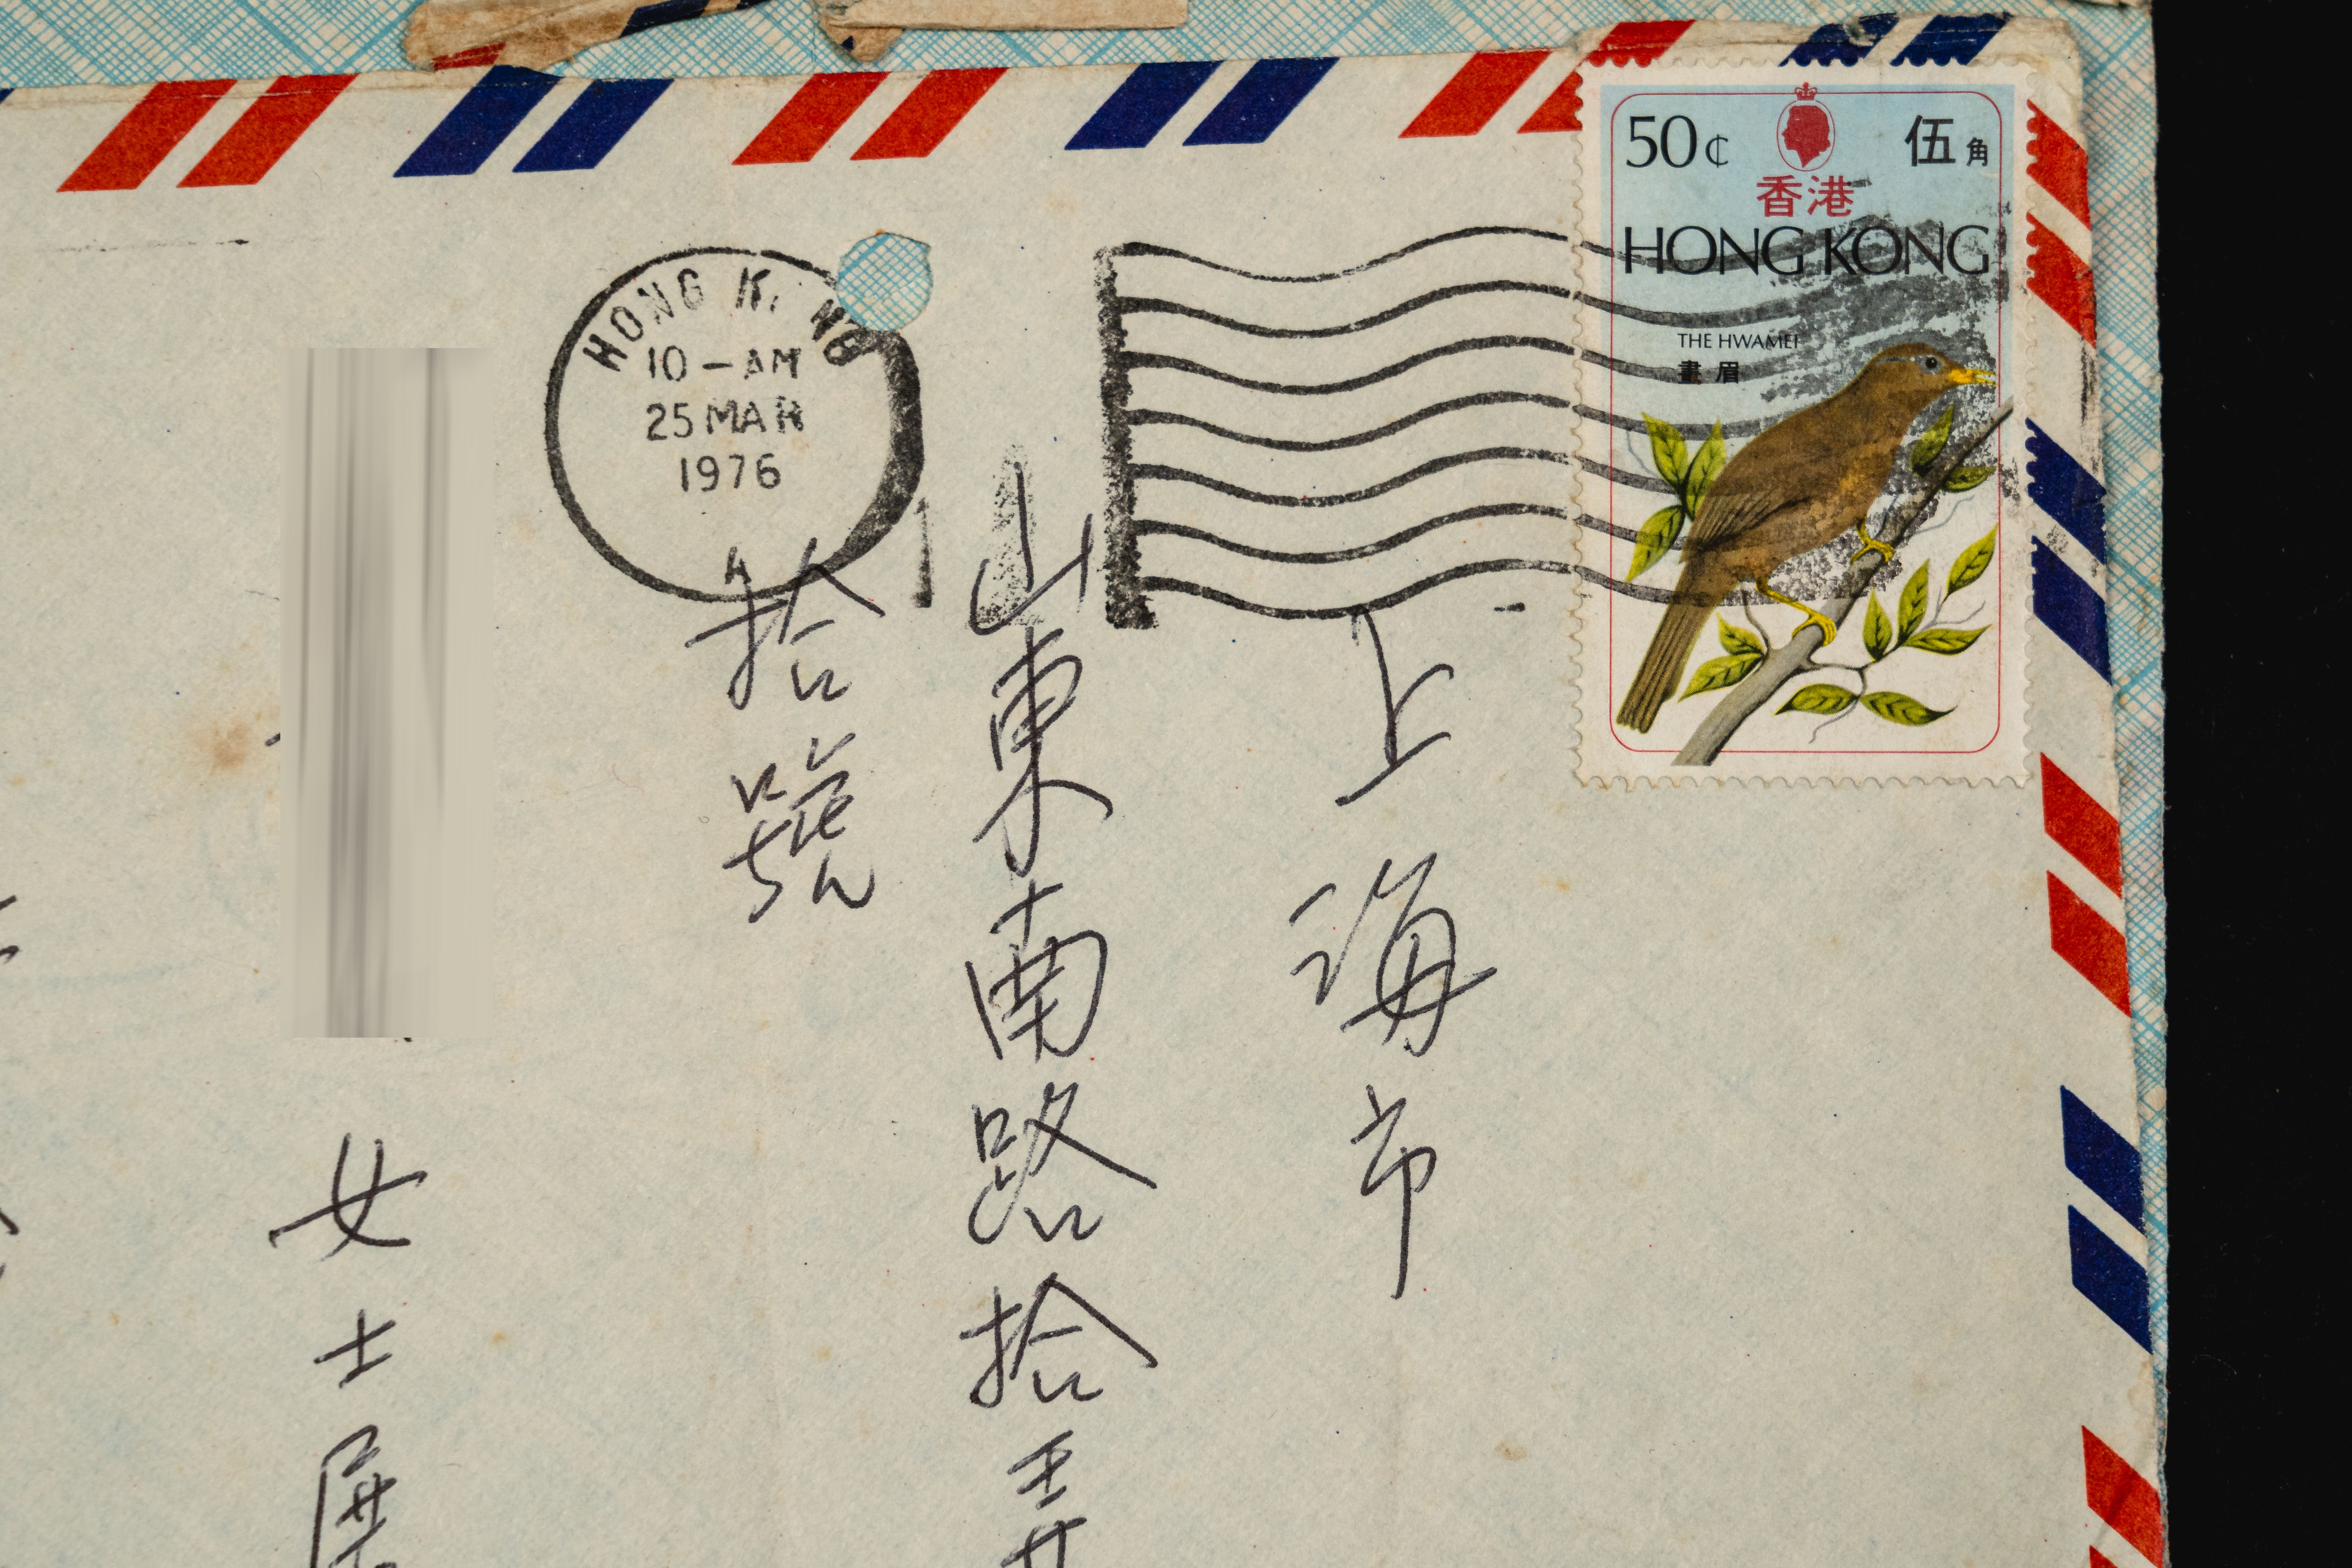 50¢ 伍角
香港
HONG KONG
THE HWAMEI
畫眉
HONG K NG
10-AM
25 MAR
1976
A
上海市
山東南路拾弄
拾號
女士展